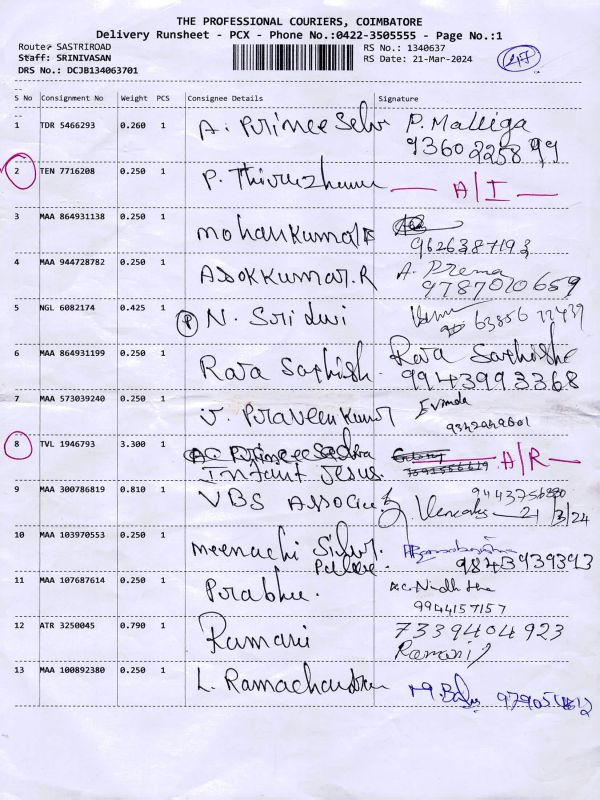 THE PROFESSIONAL COURIERS, COIMBATORE
Delivery Runsheet - PCX - Phone No.:0422-3505555 - Page No.:1
Route: SASTRIROAD RS No.: 1340637
Staff: SRINIVASAN RS Date: 21-Mar-2024
DRS No.: DCJB134063701
47
S No Consignment No Weight PCS Consignee Details Signature
1 TDR 5466293 0.260 1 A. Prince Selv P. Malliga
93602 258 99
2 TEN 7716208 0.250 1 P. A/I
3 MAA 864931138 0.250 1 Mohankumar
9626387193
4 MAA 944728782 0.250 1 ASOKKUMAR.R A. Prema
9787010659
5 NGL 6082174 0.425 1 P N. Sri
6 MAA 864931199 0.250 1 Rara Sathish. Rara
99439 93368
7 MAA 573039240 0.250 1 V. Praveen Kumar
9342049601
8 TVL 1946793 3.300 1 A/R
Infant Jesus.
9 MAA 300786819 0.810 1 VBS 21/3/24
10 MAA 103970553 0.250 1 Meenachi
9843939393
11 MAA 107687614 0.250 1 Prabhu.
9944157157
12 ATR 3250045 0.790 1 Ramani 7339404923
Ramani
13 MAA 100892380 0.250 1 L. Ramachandran